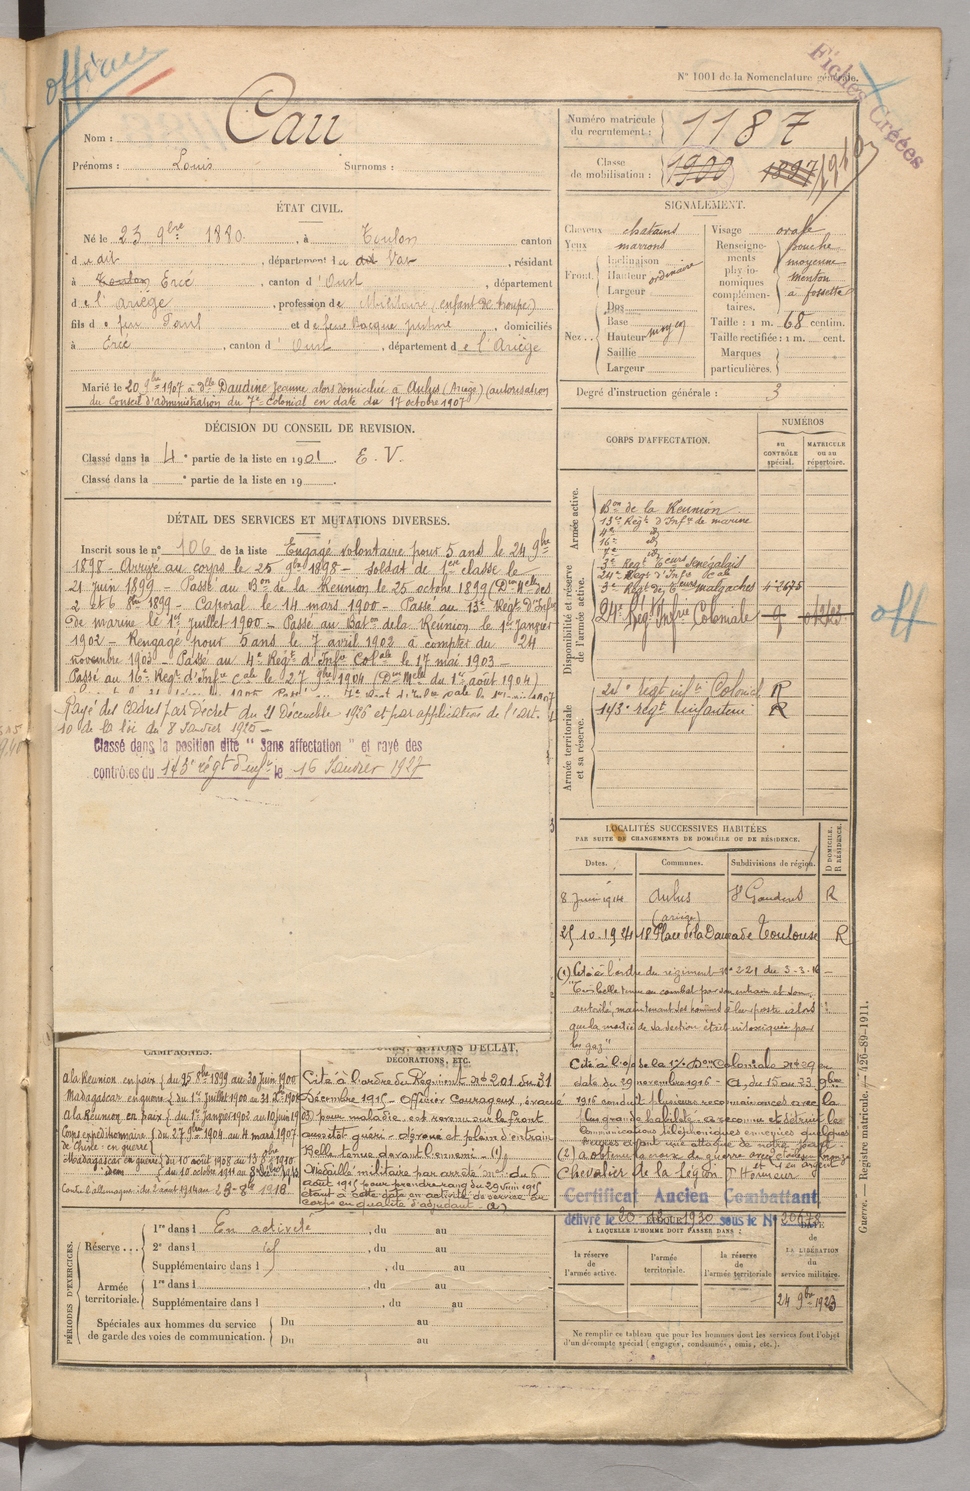 officier
N° 1001 de la Nomenclature générale.
Fiches Créées
Nom : Cau
Prénoms : Louis Surnoms :
Numéro matricule du recrutement : 1187
Classe de mobilisation : 1900 1897
ÉTAT CIVIL.
Né le 23 9bre 1880, à Toulon canton
du dit, département du dit Var, résidant
à Toulon Ercé, canton d'Oust, département
de l'Ariége, profession de Militaire (enfant de troupe)
fils de feu Paul et de feue Bacque Justine, domiciliés
à Ercé, canton d'Oust, département de l'Ariége
Marié le 20 9bre 1907 à Dlle Daudine Jeanne alors domiciliée à Aulus (Ariége) (autorisation
du Conseil d'administration du 7e Colonial en date du 17 octobre 1907
SIGNALEMENT.
Cheveux chatains
Yeux marrons
Front. Inclinaison
Hauteur ordinaire
Largeur
Nez.. Dos
Base
Hauteur moyen
Saillie
Largeur
Visage ovale
Renseignements physionomiques complémentaires. bouche moyenne menton à fossette
Taille : 1 m. 68 centim.
Taille rectifiée : 1 m. cent.
Marques particulières.
Degré d'instruction générale : 3
DÉCISION DU CONSEIL DE REVISION.
Classé dans la 4e partie de la liste en 1901. E. V.
Classé dans la e partie de la liste en 19 .
DÉTAIL DES SERVICES ET MUTATIONS DIVERSES.
Inscrit sous le n° 106 de la liste Engagé volontaire pour 5 ans le 24 9bre
1898 - Arrivé au corps le 25 9bre 1898 - Soldat de 1ere classe le
21 juin 1899 - Passé au Bon de la Réunion le 25 octobre 1899 (Don Melle des
2 et 6 8bre 1899 - Caporal le 14 mars 1900 - Passé au 13e Régt d'Infie
De marine le 1er juillet 1900 - Passé au Baton de la Réunion le 1er Janvier
1902 - Rengagé pour 5 ans le 7 avril 1902 à compter du 24
novembre 1903 - Passé au 4e Régt d'Infie Colale le 17 mai 1903 -
Passé au 16e Régt d'Infie Cale le 27 9bre 1904 (Don Melle du 1er août 1904)
Rayé des Cadres par Décret du 21 Décembre 1926 et par application de l'art.
10 de la loi du 8 Janvier 1925 -
Classé dans la position dite " Sans affectation " et rayé des
contrôles du 143e régt d'infie le 16 Janvier 1927
CORPS D'AFFECTATION.
NUMÉROS
AU CONTRÔLE spécial.
MATRICULE OU AU RÉPERTOIRE.
Armée active.
Bon de la Réunion
13e Régt d'Infie de marine
4e id
16e id
7e id
3e Régt Teurs Sénégalais
24e Régt d'Infie Cale
3e Régt de Teurs malgaches 2675
Disponibilité et réserve de l'armée active.
24e Régt Infrie Coloniale
off
Armée territoriale et sa réserve.
24e régt infie Colonial R
143e régt d'infanterie R
LOCALITÉS SUCCESSIVES HABITÉES
PAR SUITE DE CHANGEMENTS DE DOMICILE OU DE RÉSIDENCE.
Dates. Communes. Subdivisions de région. D DOMICILE. R RÉSIDENCE.
8 Juin 1914 Aulus (Ariège) St Gaudens R
25.10.1924 18 Place de la Daurade Toulouse R
(1) Cité à l'ordre du régiment n° 221 du 3-3-16 -
"Très belle tenue au combat par son entrain et son
autorité, maintenant ses hommes à leur poste alors
que la moitié de sa section était intoxiquée par
les gaz"
Cité à l'o/ de la Don Coloniale n° 29 en
date du 29 novembre 1916 - a, du 15 au 23 9bre
1916 conduit plusieurs reconnaissances avec la
plus grande habileté, a reconnu et détruit les
communications téléphoniques ennemies quelques
heures avant une attaque de notre part.
(2) a obtenu la croix de guerre avec étoiles bronze
et en argent
Chevalier de la Légion d'Honneur
Certificat Ancien Combattant
délivré le 20 1930 sous le N°
CAMPAGNES.
A la Réunion en paix { du 25 8bre 1899 au 30 Juin 1900
Madagascar en guerre { du 1er Juillet 1900 au 31 Xbre 1901
A la Réunion, en paix { du 1er Janvier 1902 au 10 Juin 1903
Corps expéditionnaire de Chine - en guerre { du 27 9bre 1904 au 4 mars 1907
Madagascar en guerre { du 10 août 1908 au 13 8bre 1910
idem { du 10 octobre 1911 au
Contre l'allemagne : du 2 aout 1914 au 23-8e 1918
BLESSURES, ACTIONS D'ÉCLAT, DÉCORATIONS, ETC.
Cité à l'ordre du Régiment N° 201 du 31
Décembre 1915 - Officier Courageux, évacué
pour maladie, est revenu sur le front
aussitôt guéri - Agrone et plein d'entrain
Belle tenue devant l'ennemi - (1)
Médaille militaire par arrêté mel du 6
août 1915 pour prendre rang du 29 Juin 1915
étant à cette date en activité de service au
Corps en qualité d'adjudant - (2)
PÉRIODES D'EXERCICES.
Réserve ... 1re dans l En activité, du au
2e dans l id, du au
Supplémentaire dans l, du au
Armée territoriale. 1re dans l, du au
Supplémentaire dans l, du au
Spéciales aux hommes du service de garde des voies de communication. Du au
Du au
À LAQUELLE L'HOMME DOIT PASSER DANS :
la réserve de l'armée active.
l'armée territoriale.
la réserve de l'armée territoriale
DATE de LA LIBÉRATION du service militaire.
24 9bre 1923
Ne remplir ce tableau que pour les hommes dont les services font l'objet
d'un décompte spécial (engagés, condamnés, omis, etc.).
Guerre. — Registre matricule. — 426-89-1911.